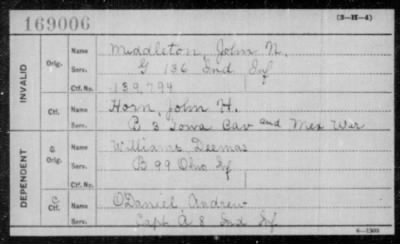 169006
(3-H-4)
INVALID
Orig.
Name
Middleton, John N.
Serv.
G 136 Ind Inf
Ctf. No.
139,794
Ctf.
Name
Horn, John H.
Serv.
B 3 Iowa Cav and Mex War
DEPENDENT
O.
Orig.
Name
Williams Deemas
Serv.
B 99 Ohio If
Ctf. No.
C.
Ctf.
Name
ODaniel Andrew
Serv.
Capt A 8 Ind Inf